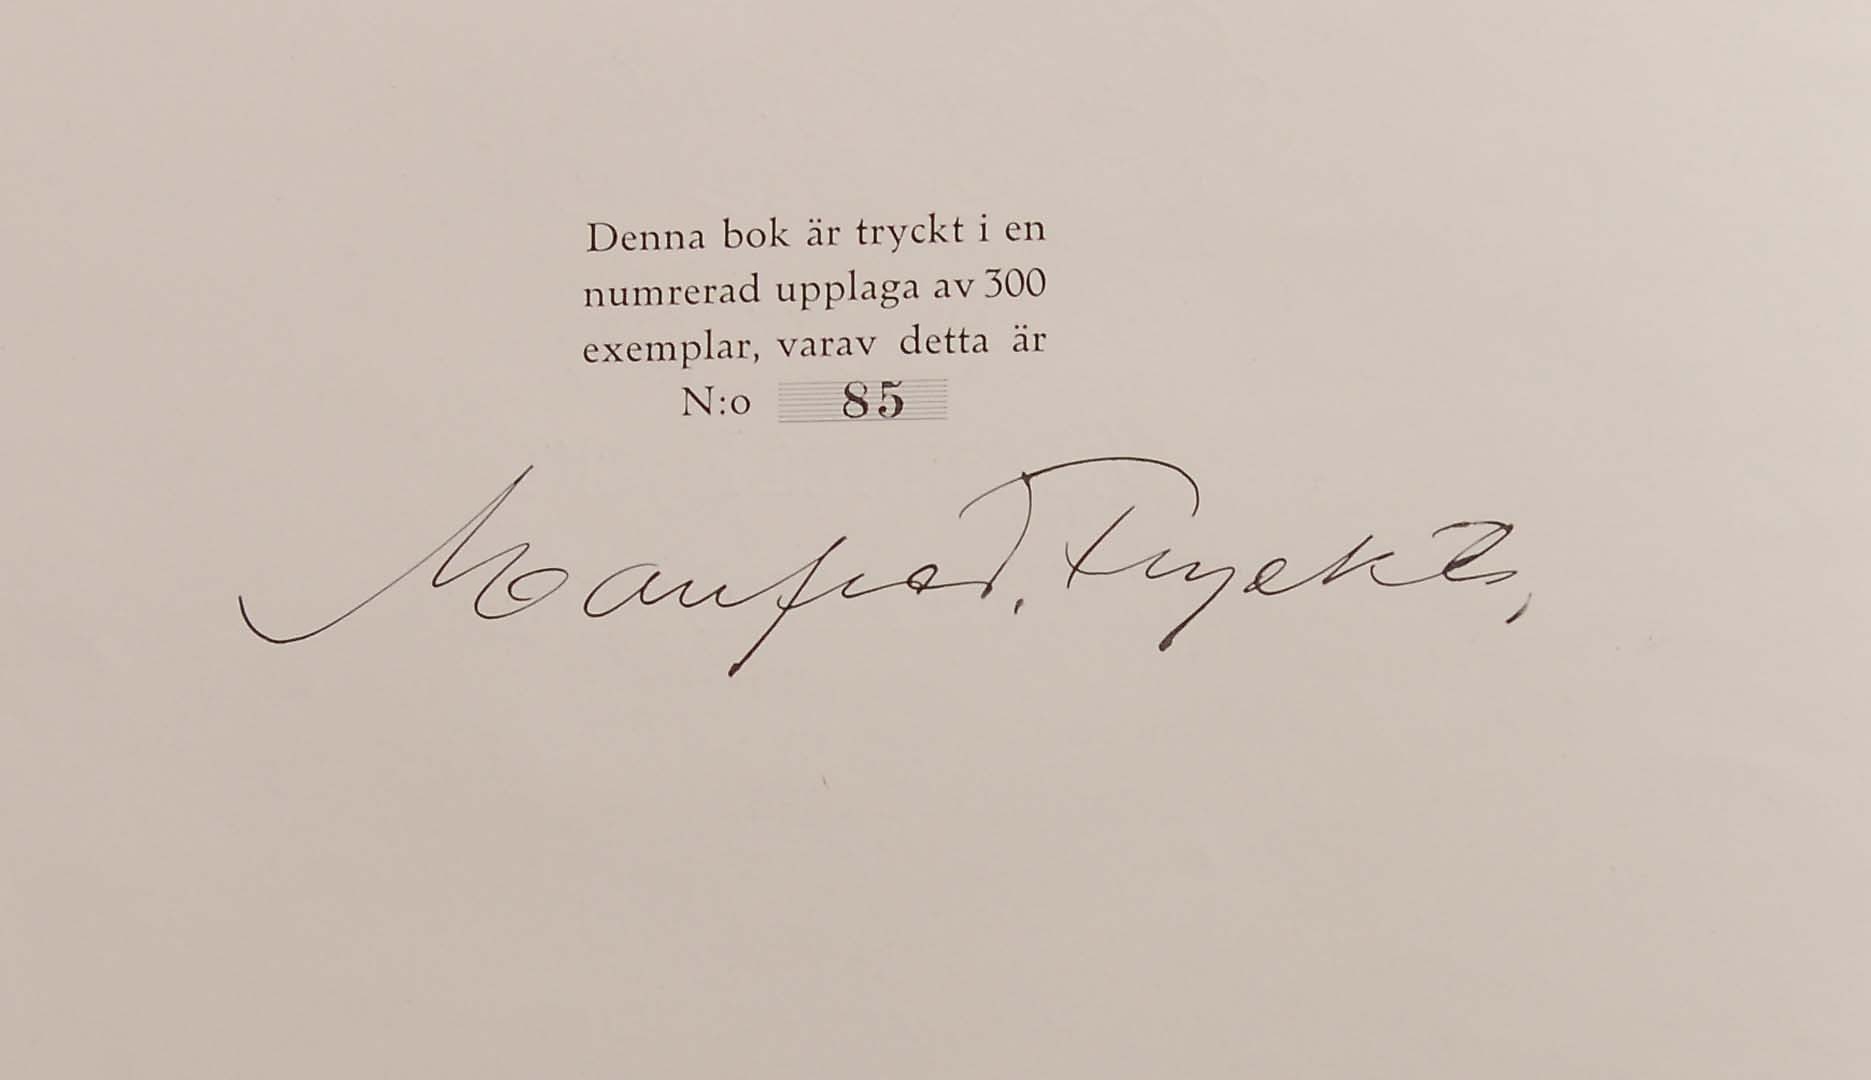 Denna bok är tryckt i en
numrerad upplaga av 300
exemplar, varav detta är
N:o 85
Manfred